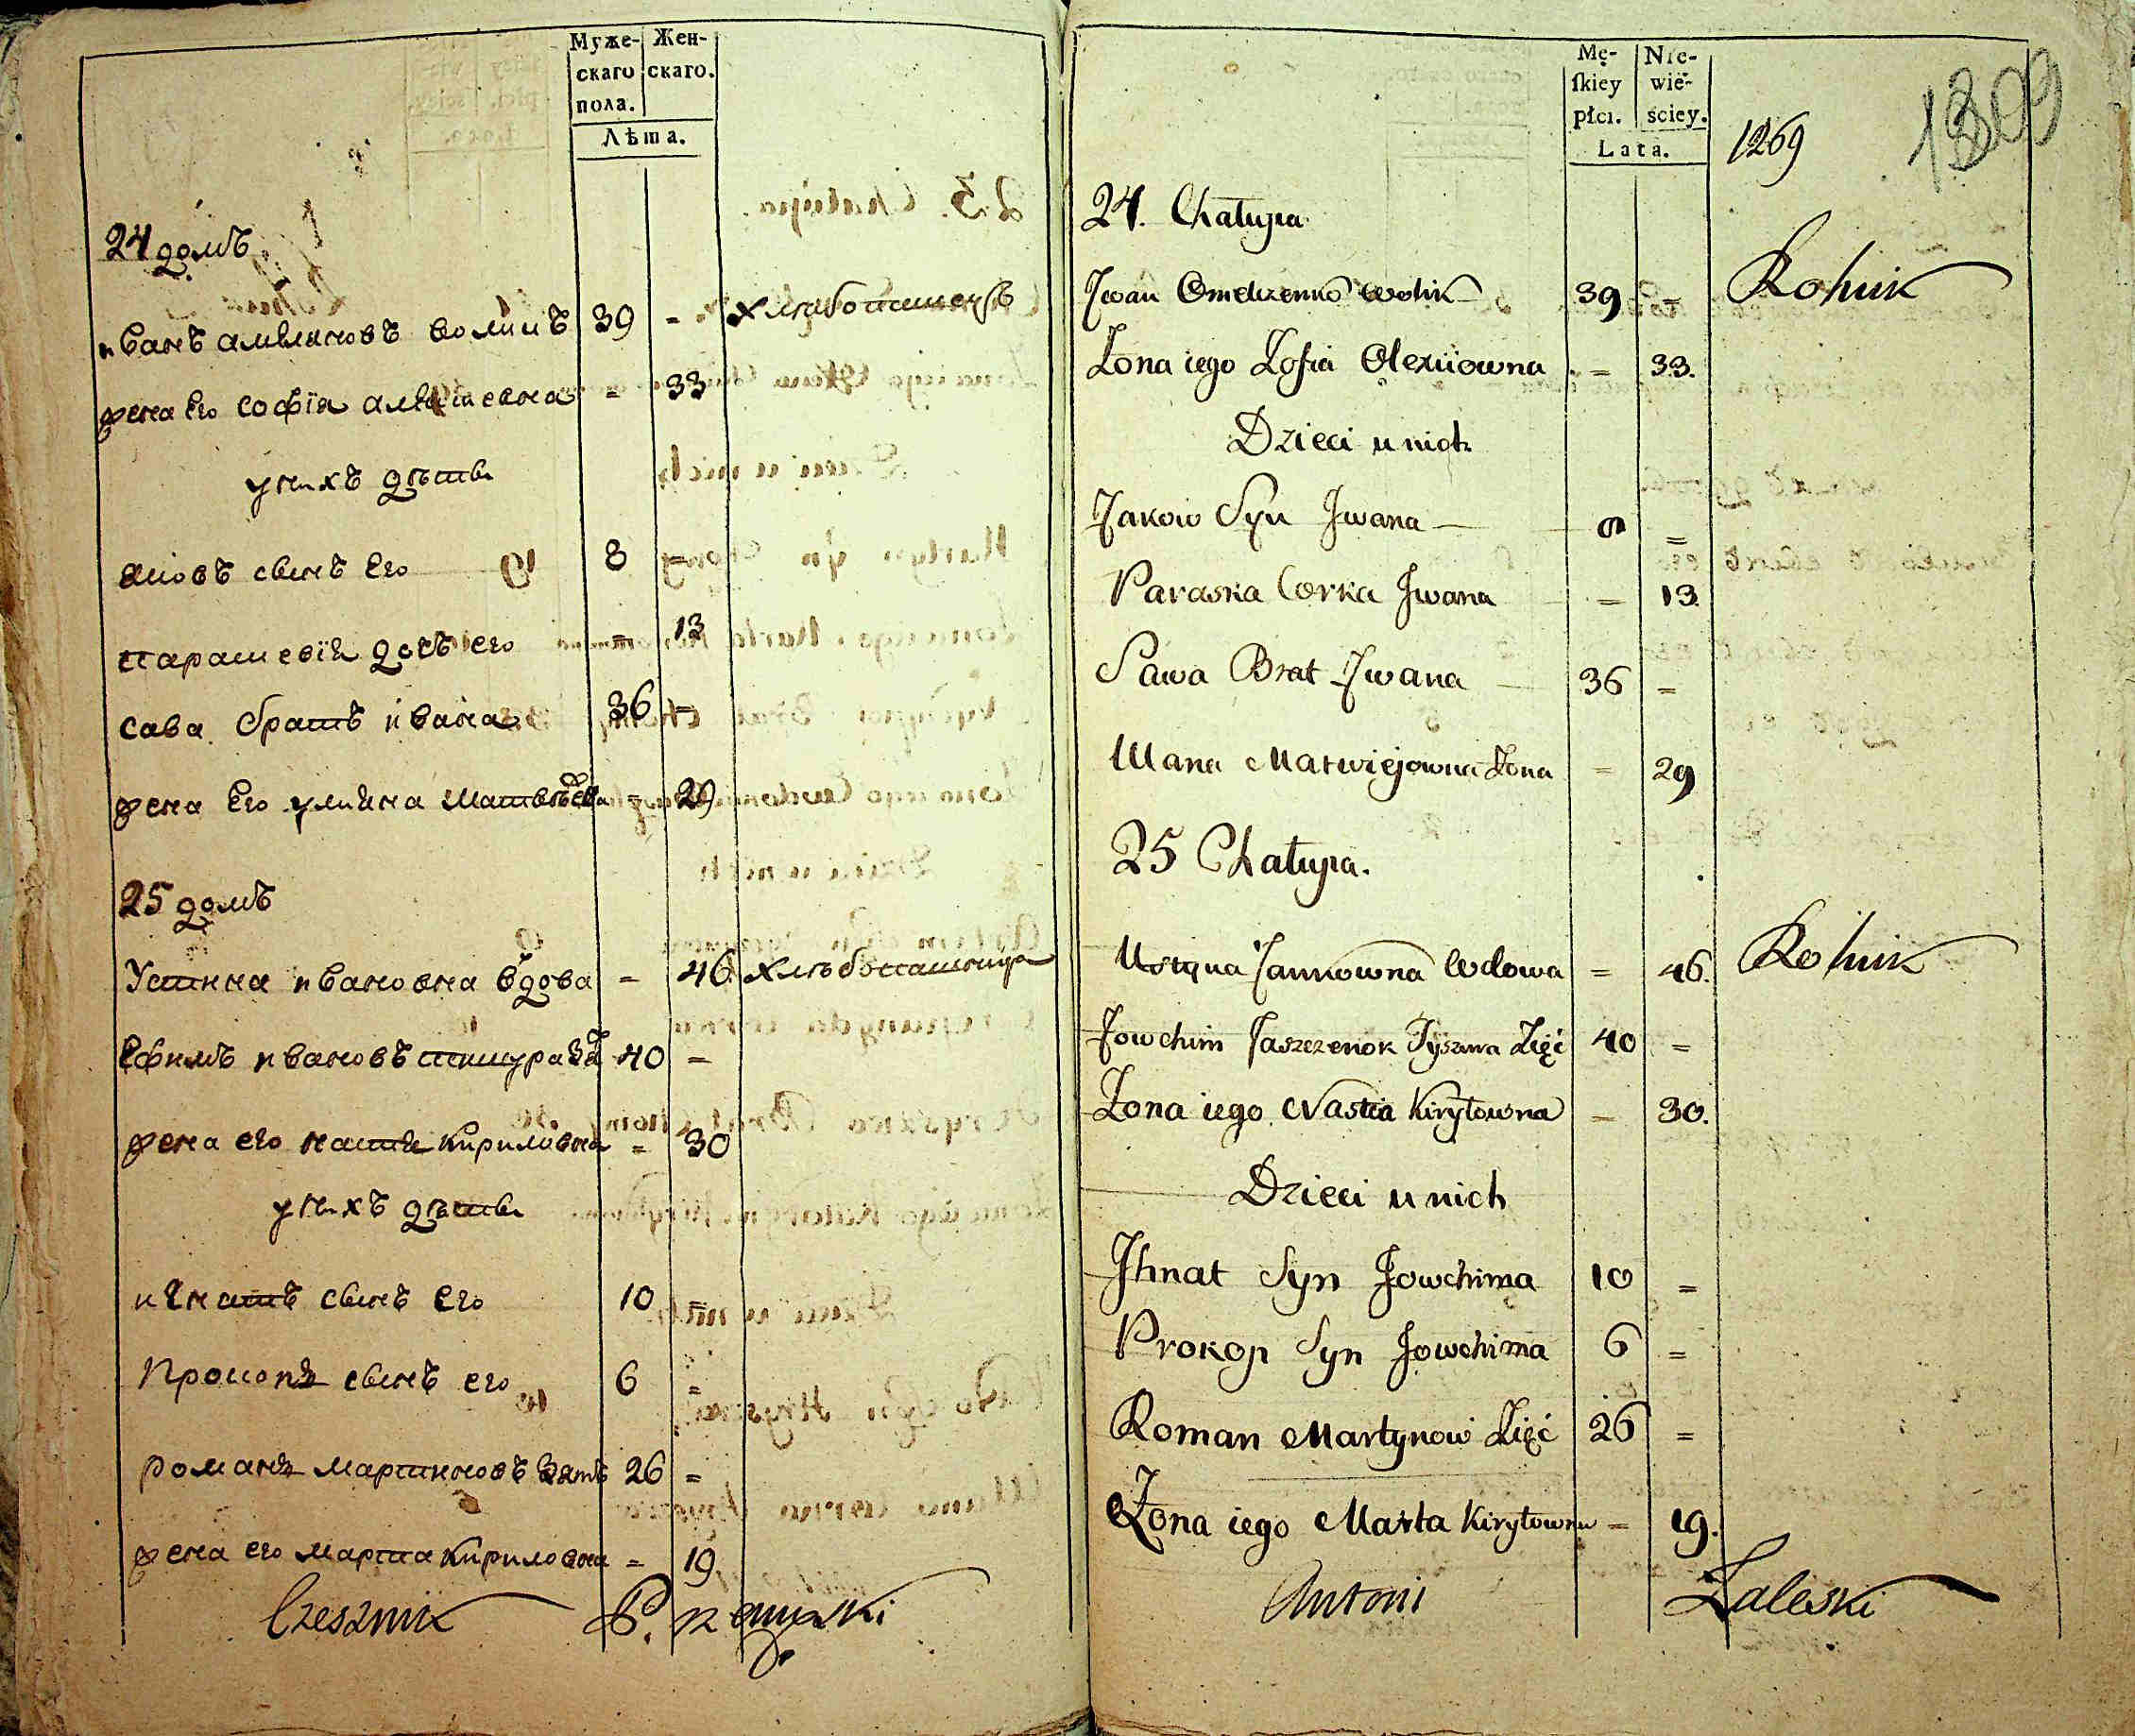 Муже- Жен-
скаго скаго.
пола.
Лѣта.
24 домъ
иванъ амельяновъ волинъ 39 = хлѣбопашецъ
жена Его софїя алексѣевна = 33
у нихъ дѣти
яковъ сынъ Его 8 =
парасковїя дочь его = 13
сава братъ ивана 36 =
жена Его улияна матвѣева = 29
25 домъ
Устина ивановна вдова = 46 хлѣбопашница
Ефимъ ивановъ тишура зять 40 =
жена его настя кириловна = 30
у нихъ дѣти
игнатъ сынъ Его 10 =
Прокопъ сынъ его 6 =
романъ мартиновъ зять 26 =
жена его марта кириловна = 19
Czesznik P.
Mę- Nie-
skiey wie-
płci. ściey.
Lata.
1269
1309
24. Chałupa
Jwan Omelczenko Wolik 39 = Rolnik
Żona iego Zofia Olexiiowna = 33.
Dzieci u nich
Jakow Syn Jwana 8 =
Paraska Corka Jwana = 13
Sawa Brat Jwana 36 =
Ulana Matwiejowna Żona = 29
25 Chałupa.
Ustyna Jankowna Wdowa = 46. Rolnik
Jowchim Jaszczenok Tyszura Zięć 40 =
Żona iego Nastia Kiryłowna = 30.
Dzieci u nich
Jhnat Syn Jowchima 10 =
Prokop Syn Jowchima 6 =
Roman Martynow Zięć 26 =
Żona iego Marta Kiryłowna = 19.
Antoni Zaleski